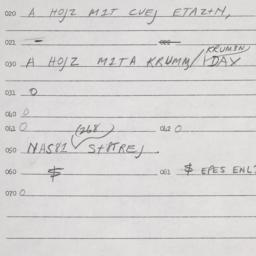 020 A HOJZ MIT CVEJ ETAZ+N,
021 -
030 A HOJZ MITA KRUMM/ KRUMBN DAY
031 0
040 0
041 0 042 0
(268)
050 NAS81 S+8TREJ.
060 $ 061 $ EPES ENL?
070 0